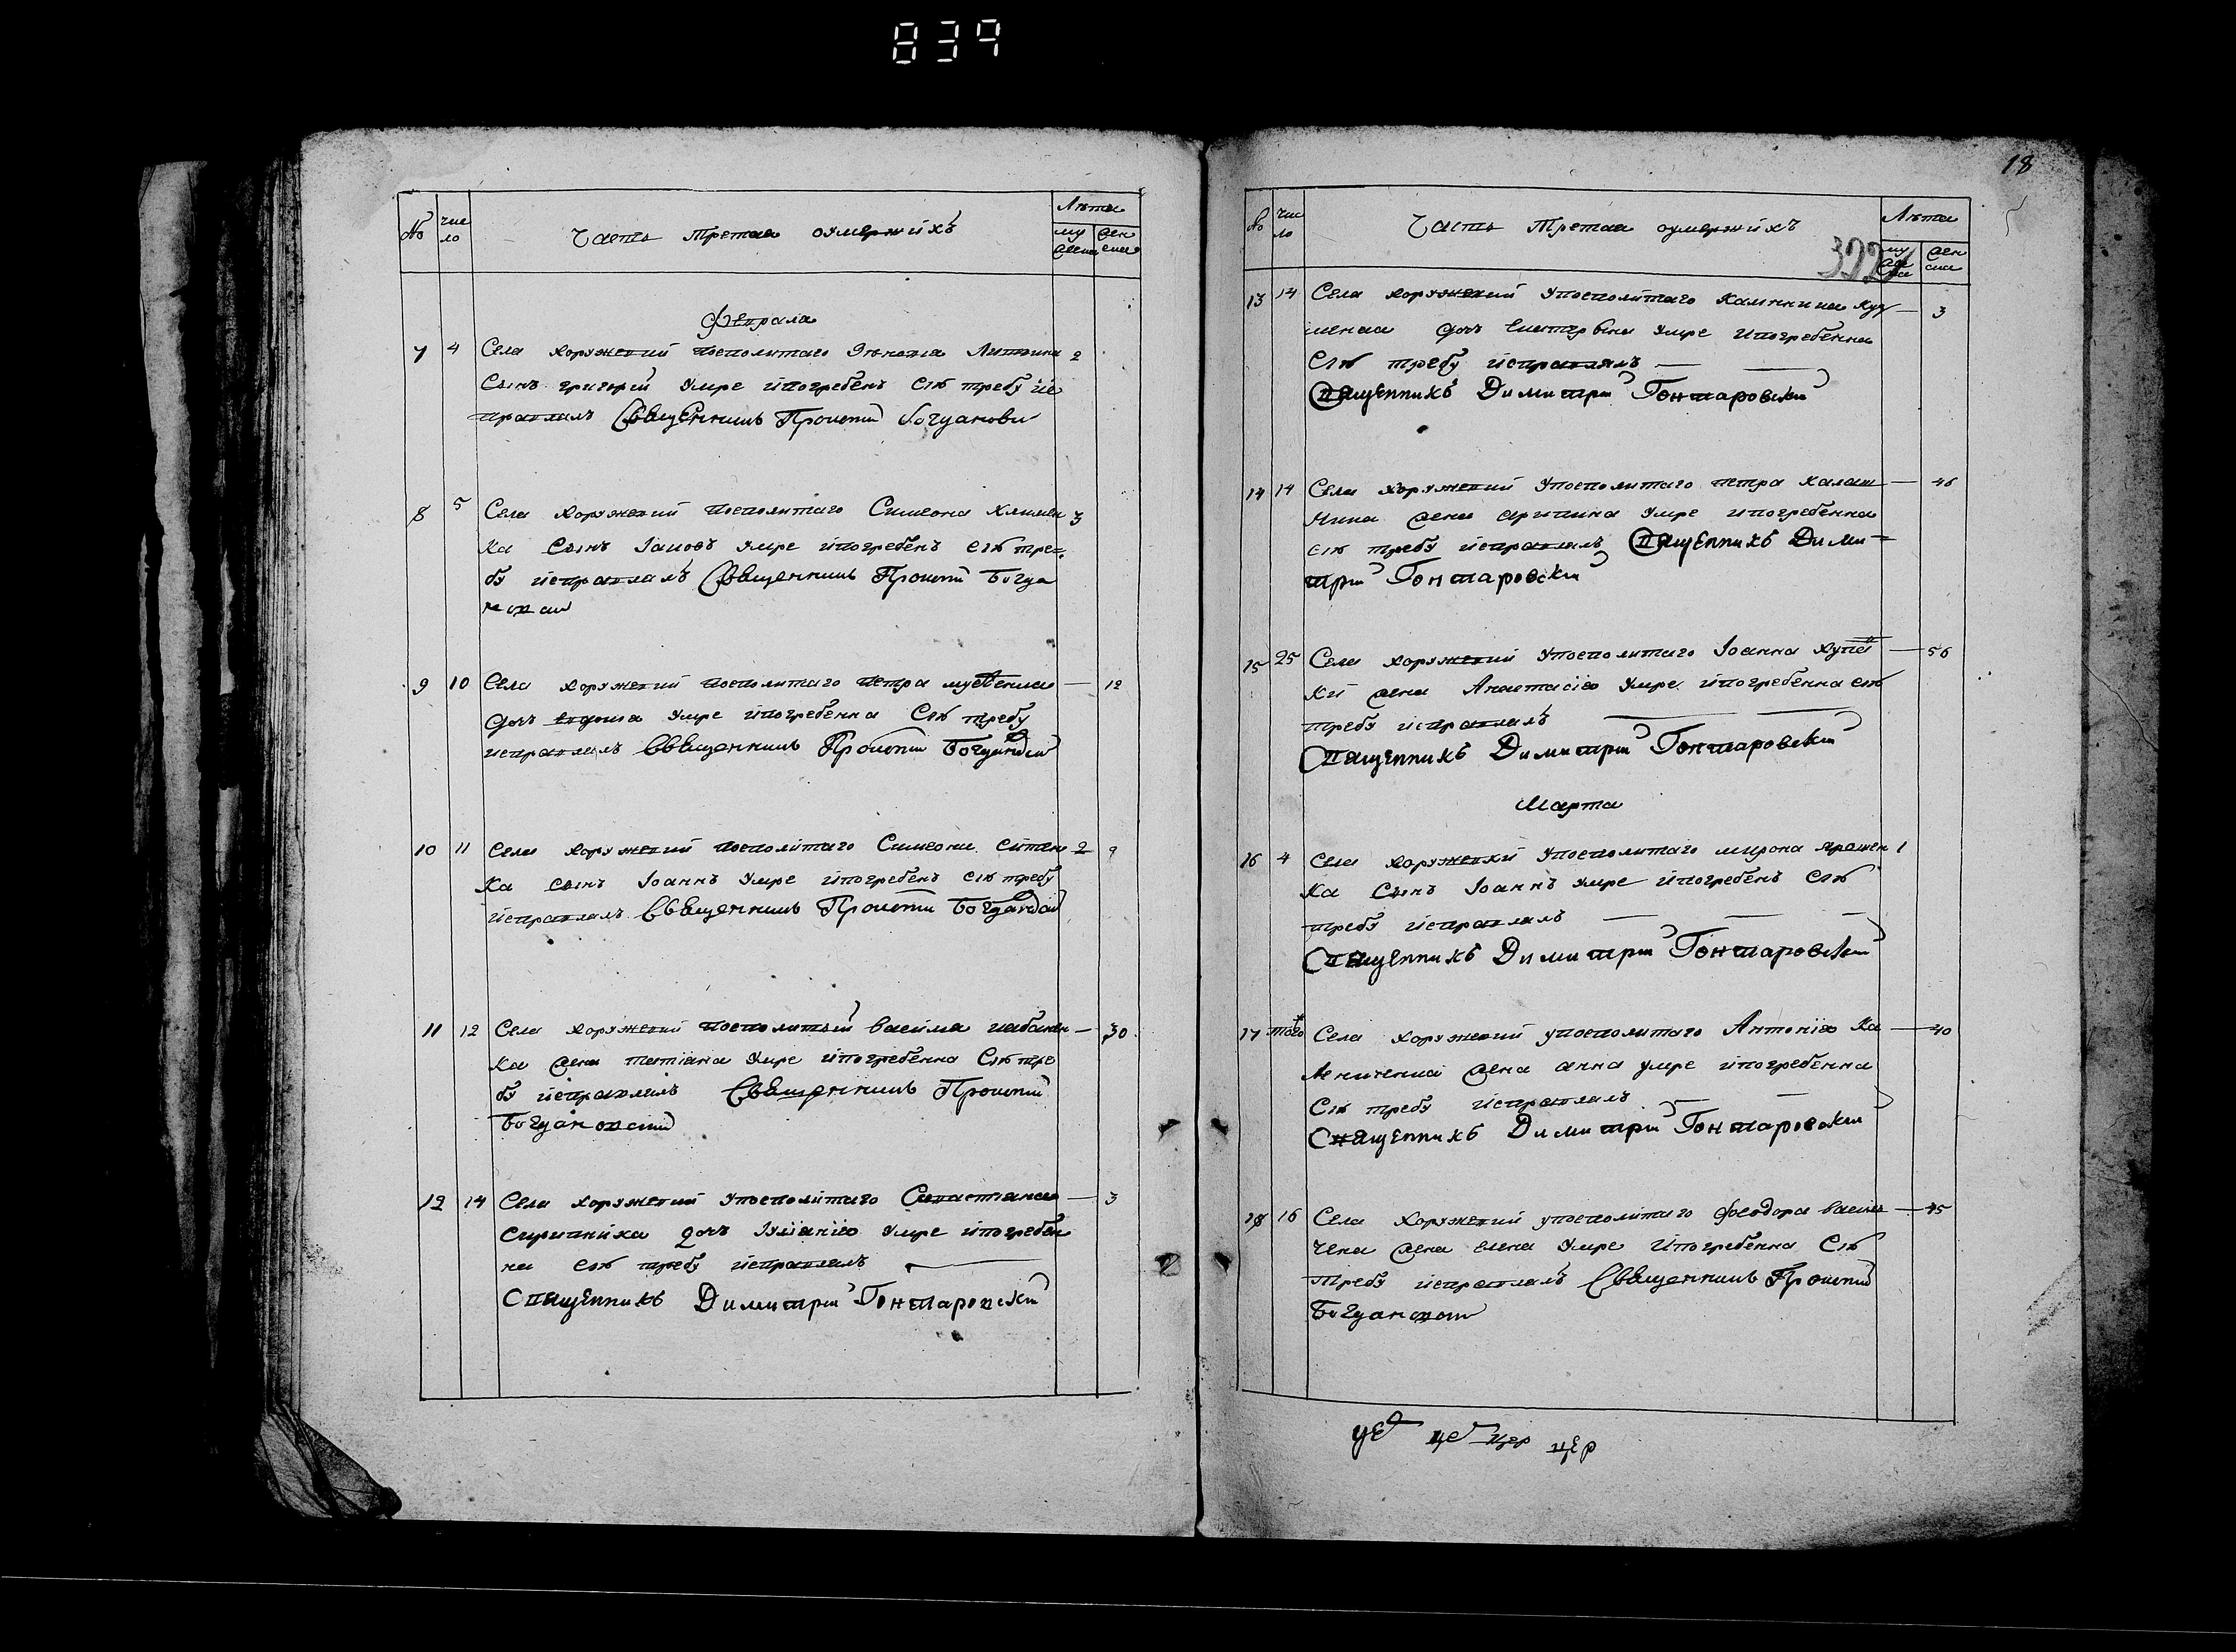 839
№ число Часть Третая оумержихъ Лѣта
мужска женска
Февраля
7 4 Села Хоружевки посполитаго 2
Сынъ григорий умре ипогребенъ сію требу ис
правлялъ Священникъ Прокопий
8 5 Села Хоружевки посполитаго Симеона Климен 3
ка Сынъ Іаковъ умре ипогребенъ сію тре=
бу исправлялъ Священникъ Прокопий Богда
новский
9 10 Села Хоружевки посполитаго петра — 12
дочь умре ипогребенна Сію требу
исправлялъ Священникъ Прокопий Богдановский
10 11 Села Хоружевки посполитаго Симеона 2
ка Сынъ Іоаннъ умре ипогребенъ сію требу
исправлялъ Священникъ Прокопий Богдановский
11 12 Села Хоружевки посполитый — 30
ка жена татіана умре ипогребенна Сію тре
бу исправлялъ Священникъ Прокопий
Богдановский
12 14 Села Хоружевки упосполитаго Севастіана — 3
дочь Іуліанія умре ипогребен
на сію требу исправлялъ —
Священникъ Димитрий Гонтаровский
18
322
№ число Часть Третая оумержихъ Лѣта
мужска женска
13 14 Села Хоружевки упосполитаго — 3
дочь умре ипогребенна
Сію требу исправлялъ — —
Священникъ Димитрий Гонтаровский
14 14 Села Хоружевки упосполитаго петра Калаш — 46
ника жена умре ипогребенна
сію требу исправлялъ Священникъ Дими=
трий Гонтаровский
15 25 Села Хоружевки упосполитаго Іоанна — 56
жена Анастасія умре ипогребенна сію
требу исправлялъ — —
Священникъ Димитрий Гонтаровский
Марта
16 4 Села Хоружевки упосполитаго мирона ярошен 1
ка Сынъ Іоаннъ умре ипогребенъ сію
требу исправлялъ — — —
Священникъ Димитрий Гонтаровский
17 того Села Хоружевки упосполитаго Антонія Ка — 40
жена анна умре ипогребенна
Сію требу исправлялъ — —
Священникъ Димитрий Гонтаровский
18 16 Села Хоружевки упосполитаго феодора — 45
жена елена умре ипогребенна Сію
требу исправлялъ Священникъ Прокопий
Богдановский
цер цер